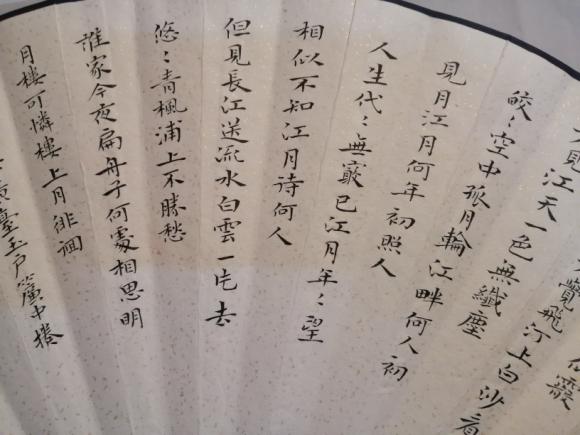 霰
覺飛汀上白沙看
不見江天一色無纖塵
皎〻空中孤月輪江畔何人初
見月江月何年初照人
人生代〻無窮已江月年〻望
相似不知江月待何人
但見長江送流水白雲一片去
悠〻青楓浦上不勝愁
誰家今夜扁舟子何處相思明
月樓可憐樓上月徘徊
臺玉戶簾中捲